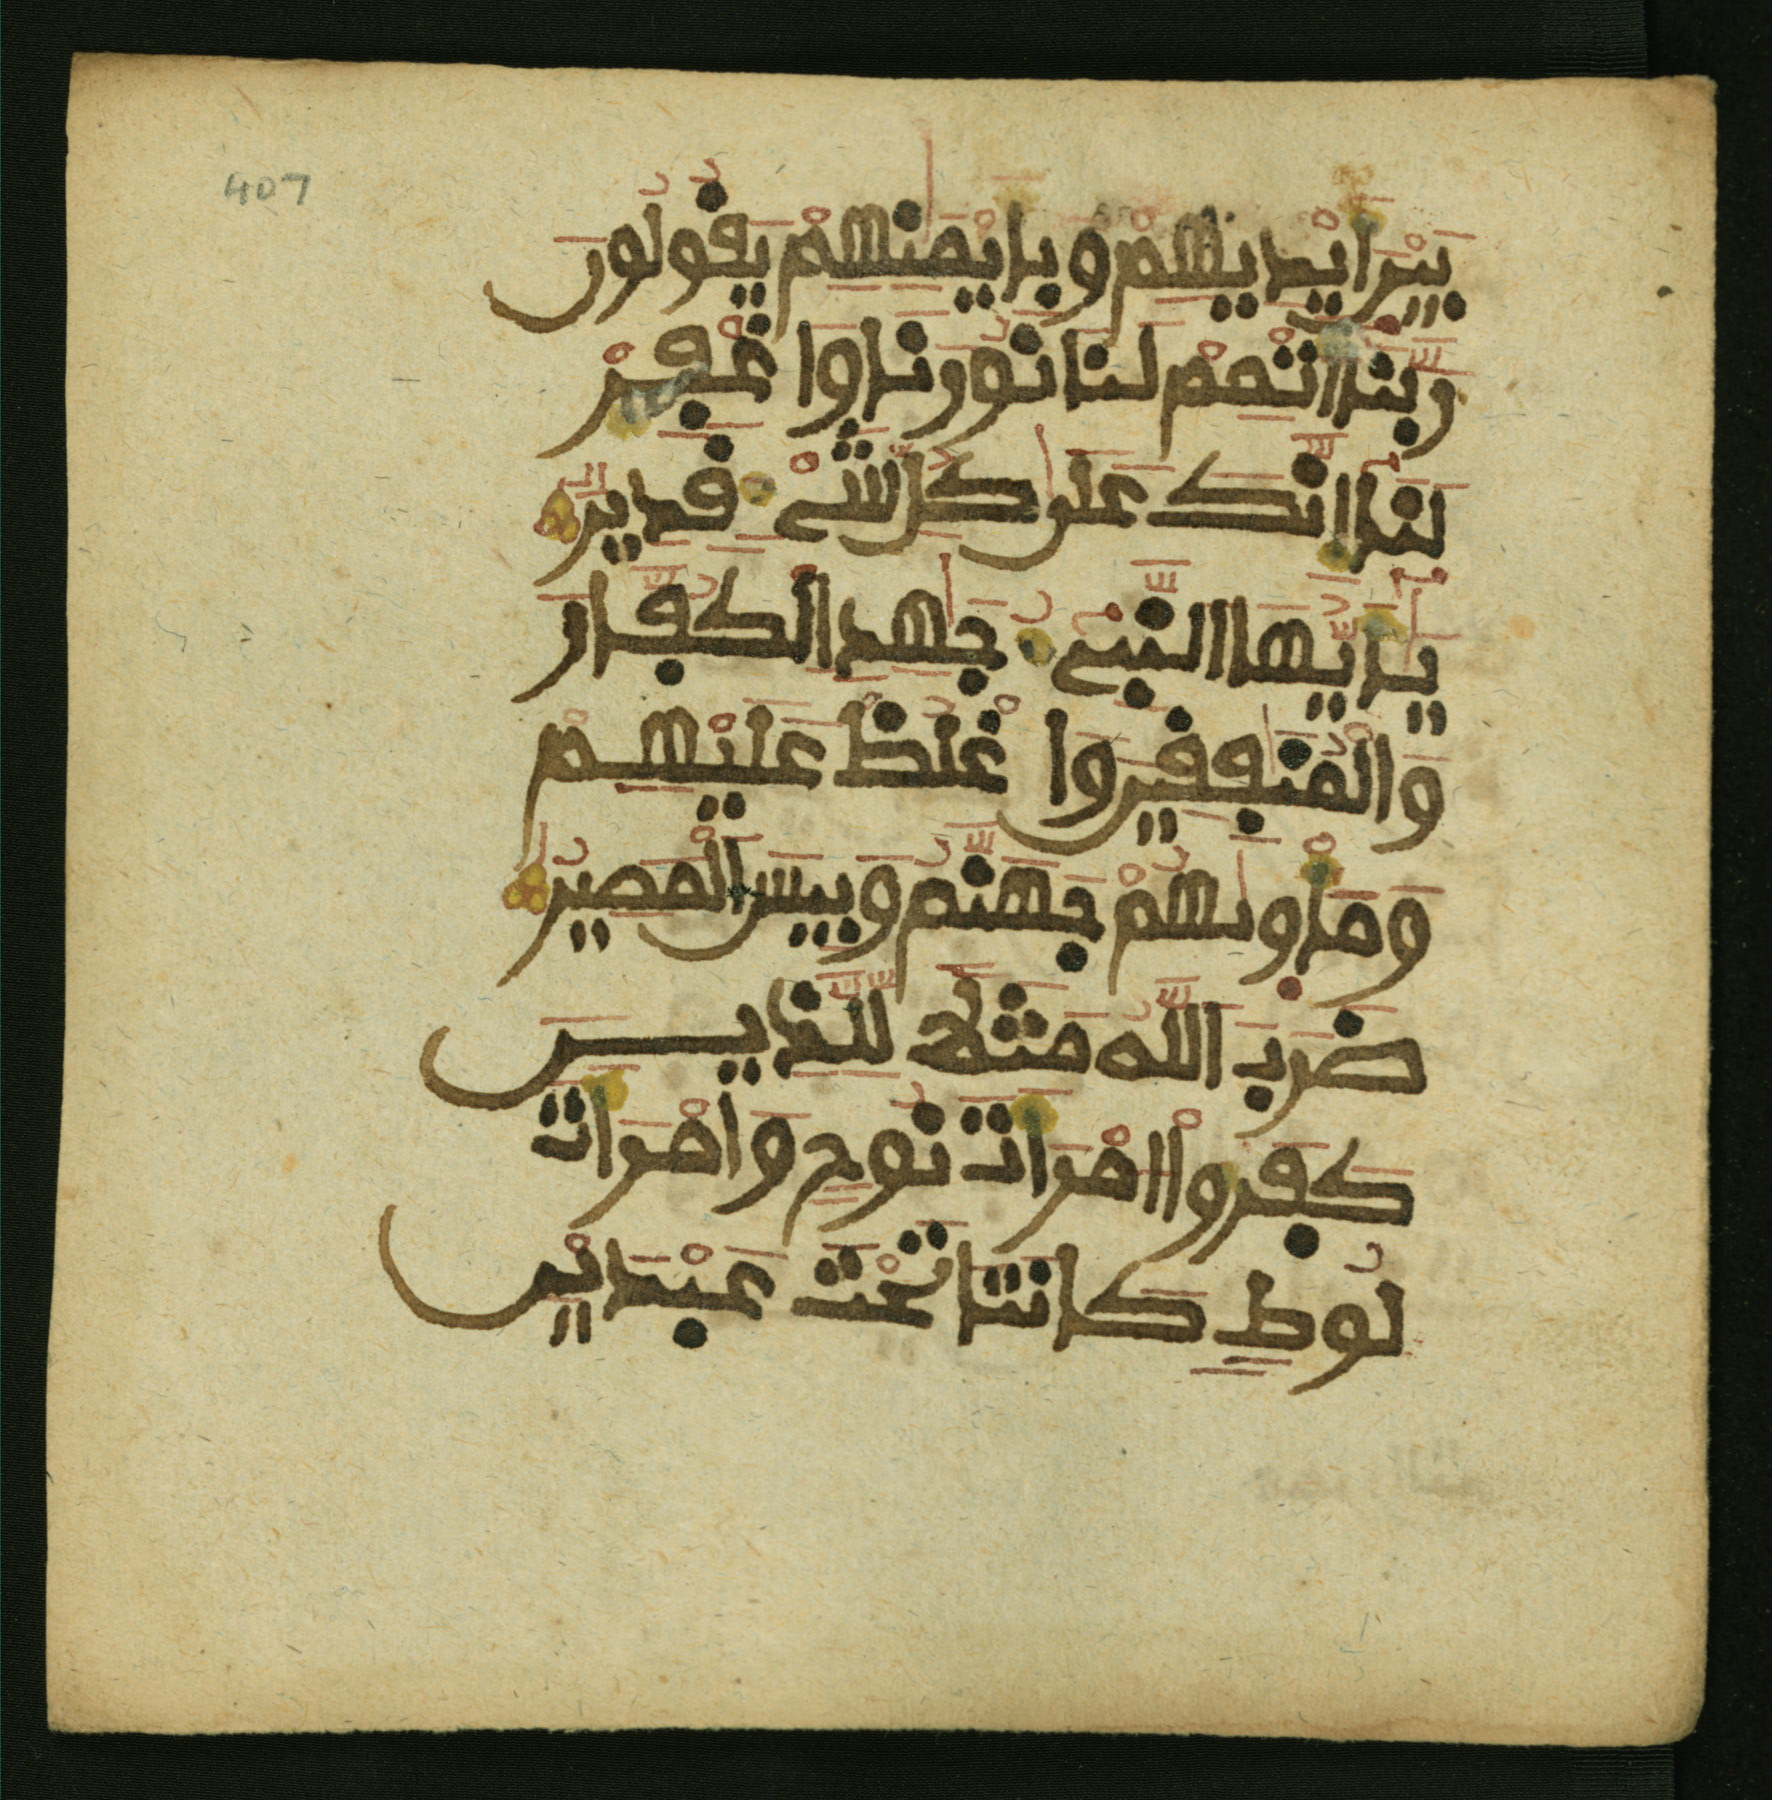 407
بَيْنَ أَيْدِيهِمْ وَبِأَيْمَٰنِهِمْ يَقُولُونَ
رَبَّنَا أَتْمِمْ لَنَا نُورَنَا وَاغْفِرْ
لَنَا إِنَّكَ عَلَىٰ كُلِّ شَيْءٍ قَدِيرٌ
يَٰأَيُّهَا النَّبِيءُ جَٰهِدِ الْكُفَّارَ
وَالْمُنَٰفِقِينَ وَاغْلُظْ عَلَيْهِمْ
وَمَأْوَىٰهُمْ جَهَنَّمُ وَبِيسَ الْمَصِيرُ
ضَرَبَ اللَّهُ مَثَلًا لِّلَّذِينَ
كَفَرُوا امْرَأَتَ نُوحٍ وَامْرَأَتَ
لُوطٍ كَانَتَا تَحْتَ عَبْدَيْنِ